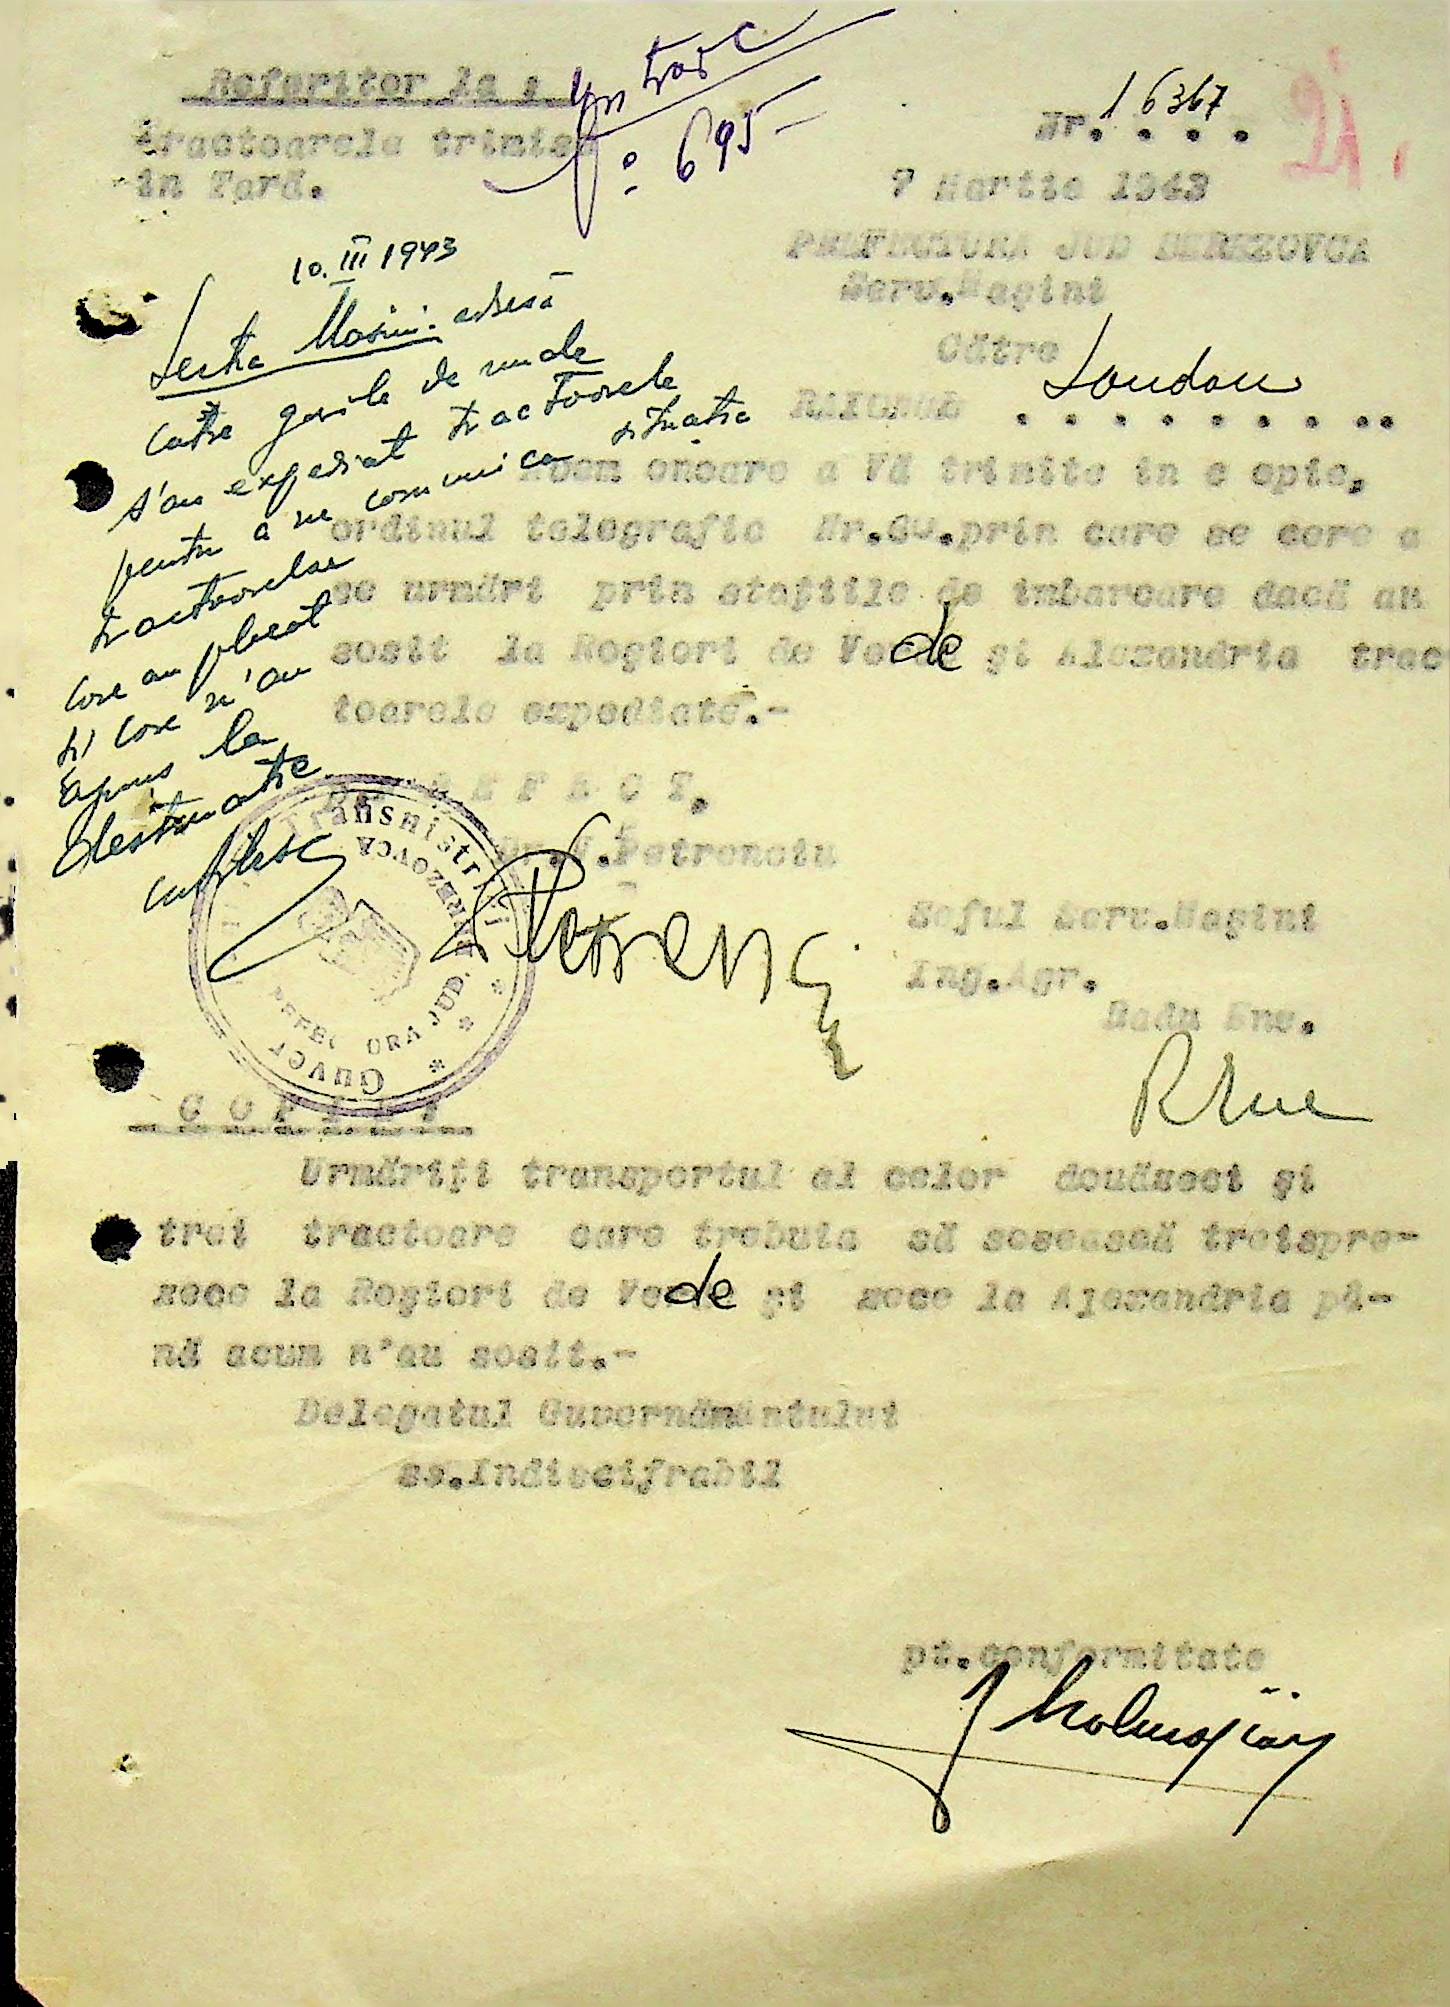 Referitor la :
tractoarele trimise
in Tară.
695
Nr. 16367
21.
7 Martie 1943
PREFECTURA JUD BEREZOVCA
Serv.Maşini
Către
RAIONUL Landau
10. III 1943
Secția Masini. adresă
către gările de unde
s'au expediat tractoarele
pentru a ne comunica situatia
tractoarelor
care au plecat
si care n'au
ajuns la
destinatie
Avem onoare a Vă trimite in c opie,
ordinul telegrafic Nr. prin care se cere a
se urmări prin staţiile de imbarcare dacă au
sosit la Roşiori de Vede şi Alexandria trac
toarele expediate.-
PREFECT.
Petrenciu
Transnistriei
Guver
JUD. BEREZOVCA
Şeful Serv.Maşini
Ing.Agr.
Radu Ene.
R Ene
COPIE
Urmăriţi transportul al celor douăzeci şi
trei tractoare care trebuia să sosească treispre-
zece la Roşiori de Vede şi zece la Alexandria pâ-
nă acum n'au sosit.-
Delegatul Guvernământului
ss.Indiscifrabil
pt.conformitate